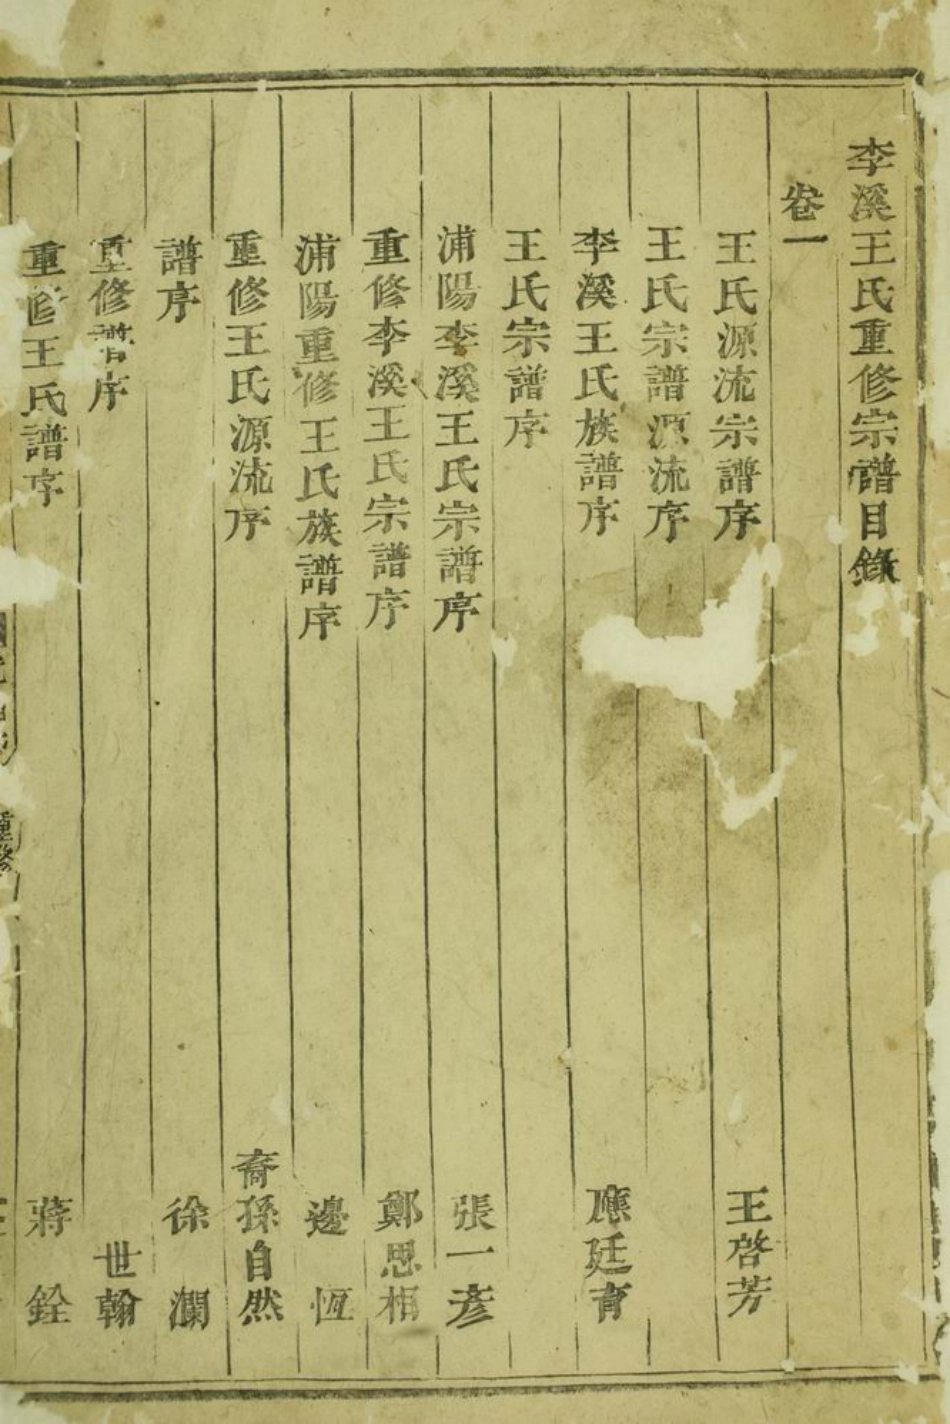 李溪王氏重修宗譜目錄
卷一
王氏源流宗譜序 王啓芳
王氏宗譜源流序
李溪王氏族譜序 應廷育
王氏宗譜序
浦陽李溪王氏宗譜序 張一彥
重修李溪王氏宗譜序 鄭思相
浦陽重修王氏族譜序 邊恆
重修王氏源流序 裔孫自然
譜序 徐瀾
重修譜序 世翰
重修王氏譜序 蔣銓
重修